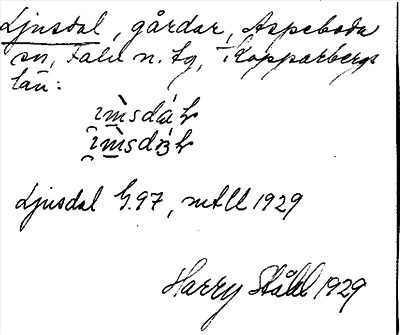 Ljusdal, gårdar, Aspeboda
sn, Falu n. tg, Kopparbergs
län:
Ljusdal G.97, mtll 1929
Harry Ståhl 1929